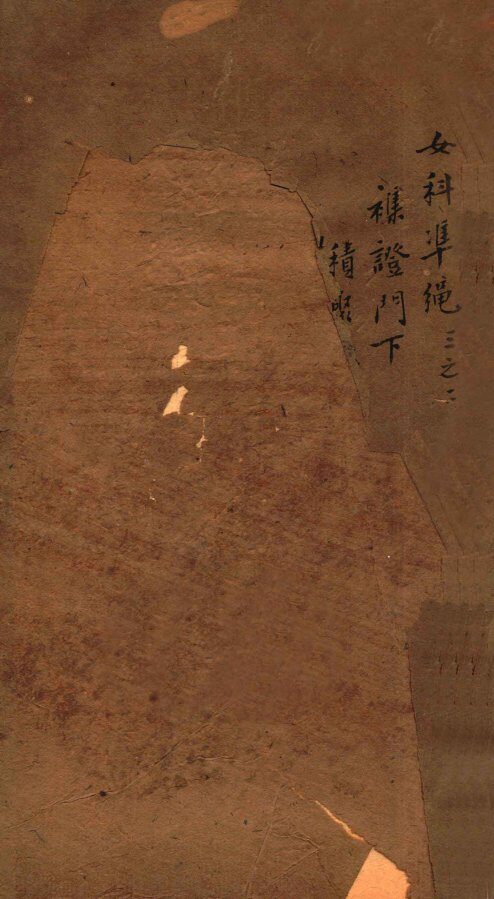 女科準繩三之二
襍證門下
積聚